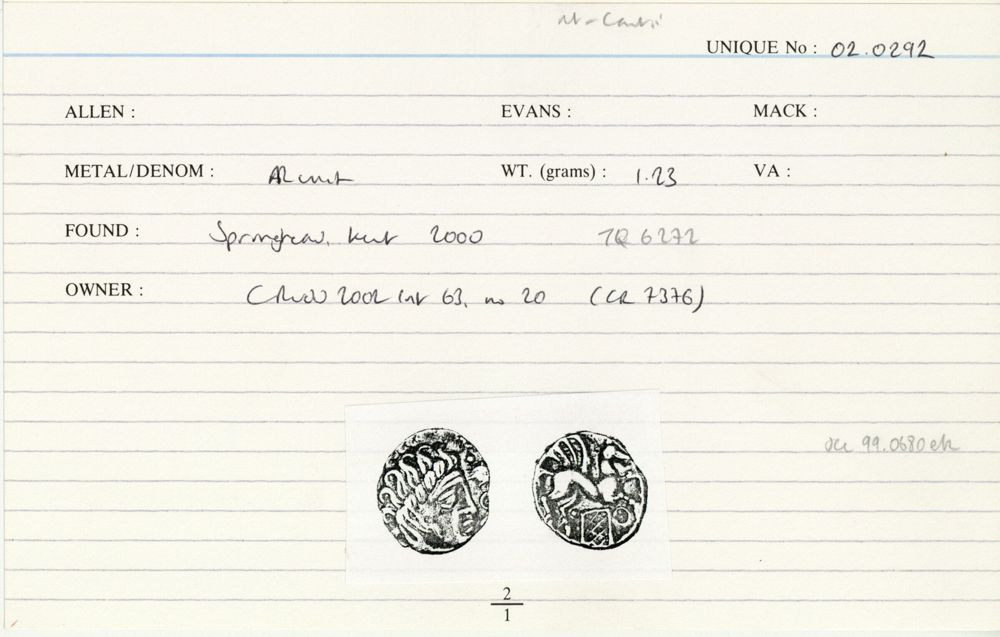 UNIQUE No : 02.0292
ALLEN : EVANS : MACK :
METAL/DENOM : AR unit WT. (grams) : 1.23 VA :
FOUND : Springhead, Kent 2000 TQ 6272
OWNER : CR 2002 list 63, no 20 (CR 7376)
99.0680 etc
2
1